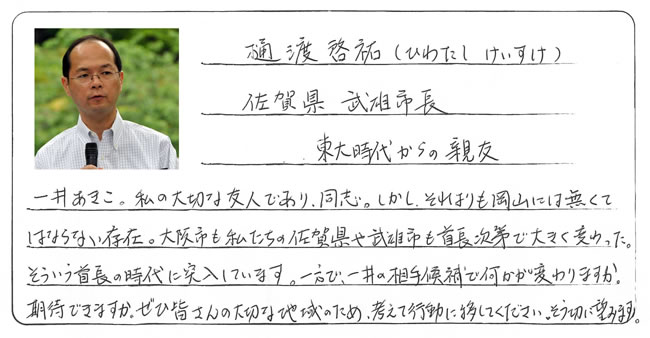 樋渡啓祐(ひわたし けいすけ)
佐賀県 武雄市長
東大時代からの親友
一井あきこ。私の大切な友人であり、同志。しかし、それよりも岡山には無くて
はならない存在。大阪市も私たちの佐賀県や武雄市も首長次第で大きく変わった。
そういう首長の時代に突入しています。一方で、一井の相手候補で何かが変わりますか。
期待できますか。ぜひ皆さんの大切な地域のため、考えて行動に移してください。そう切に望みます。